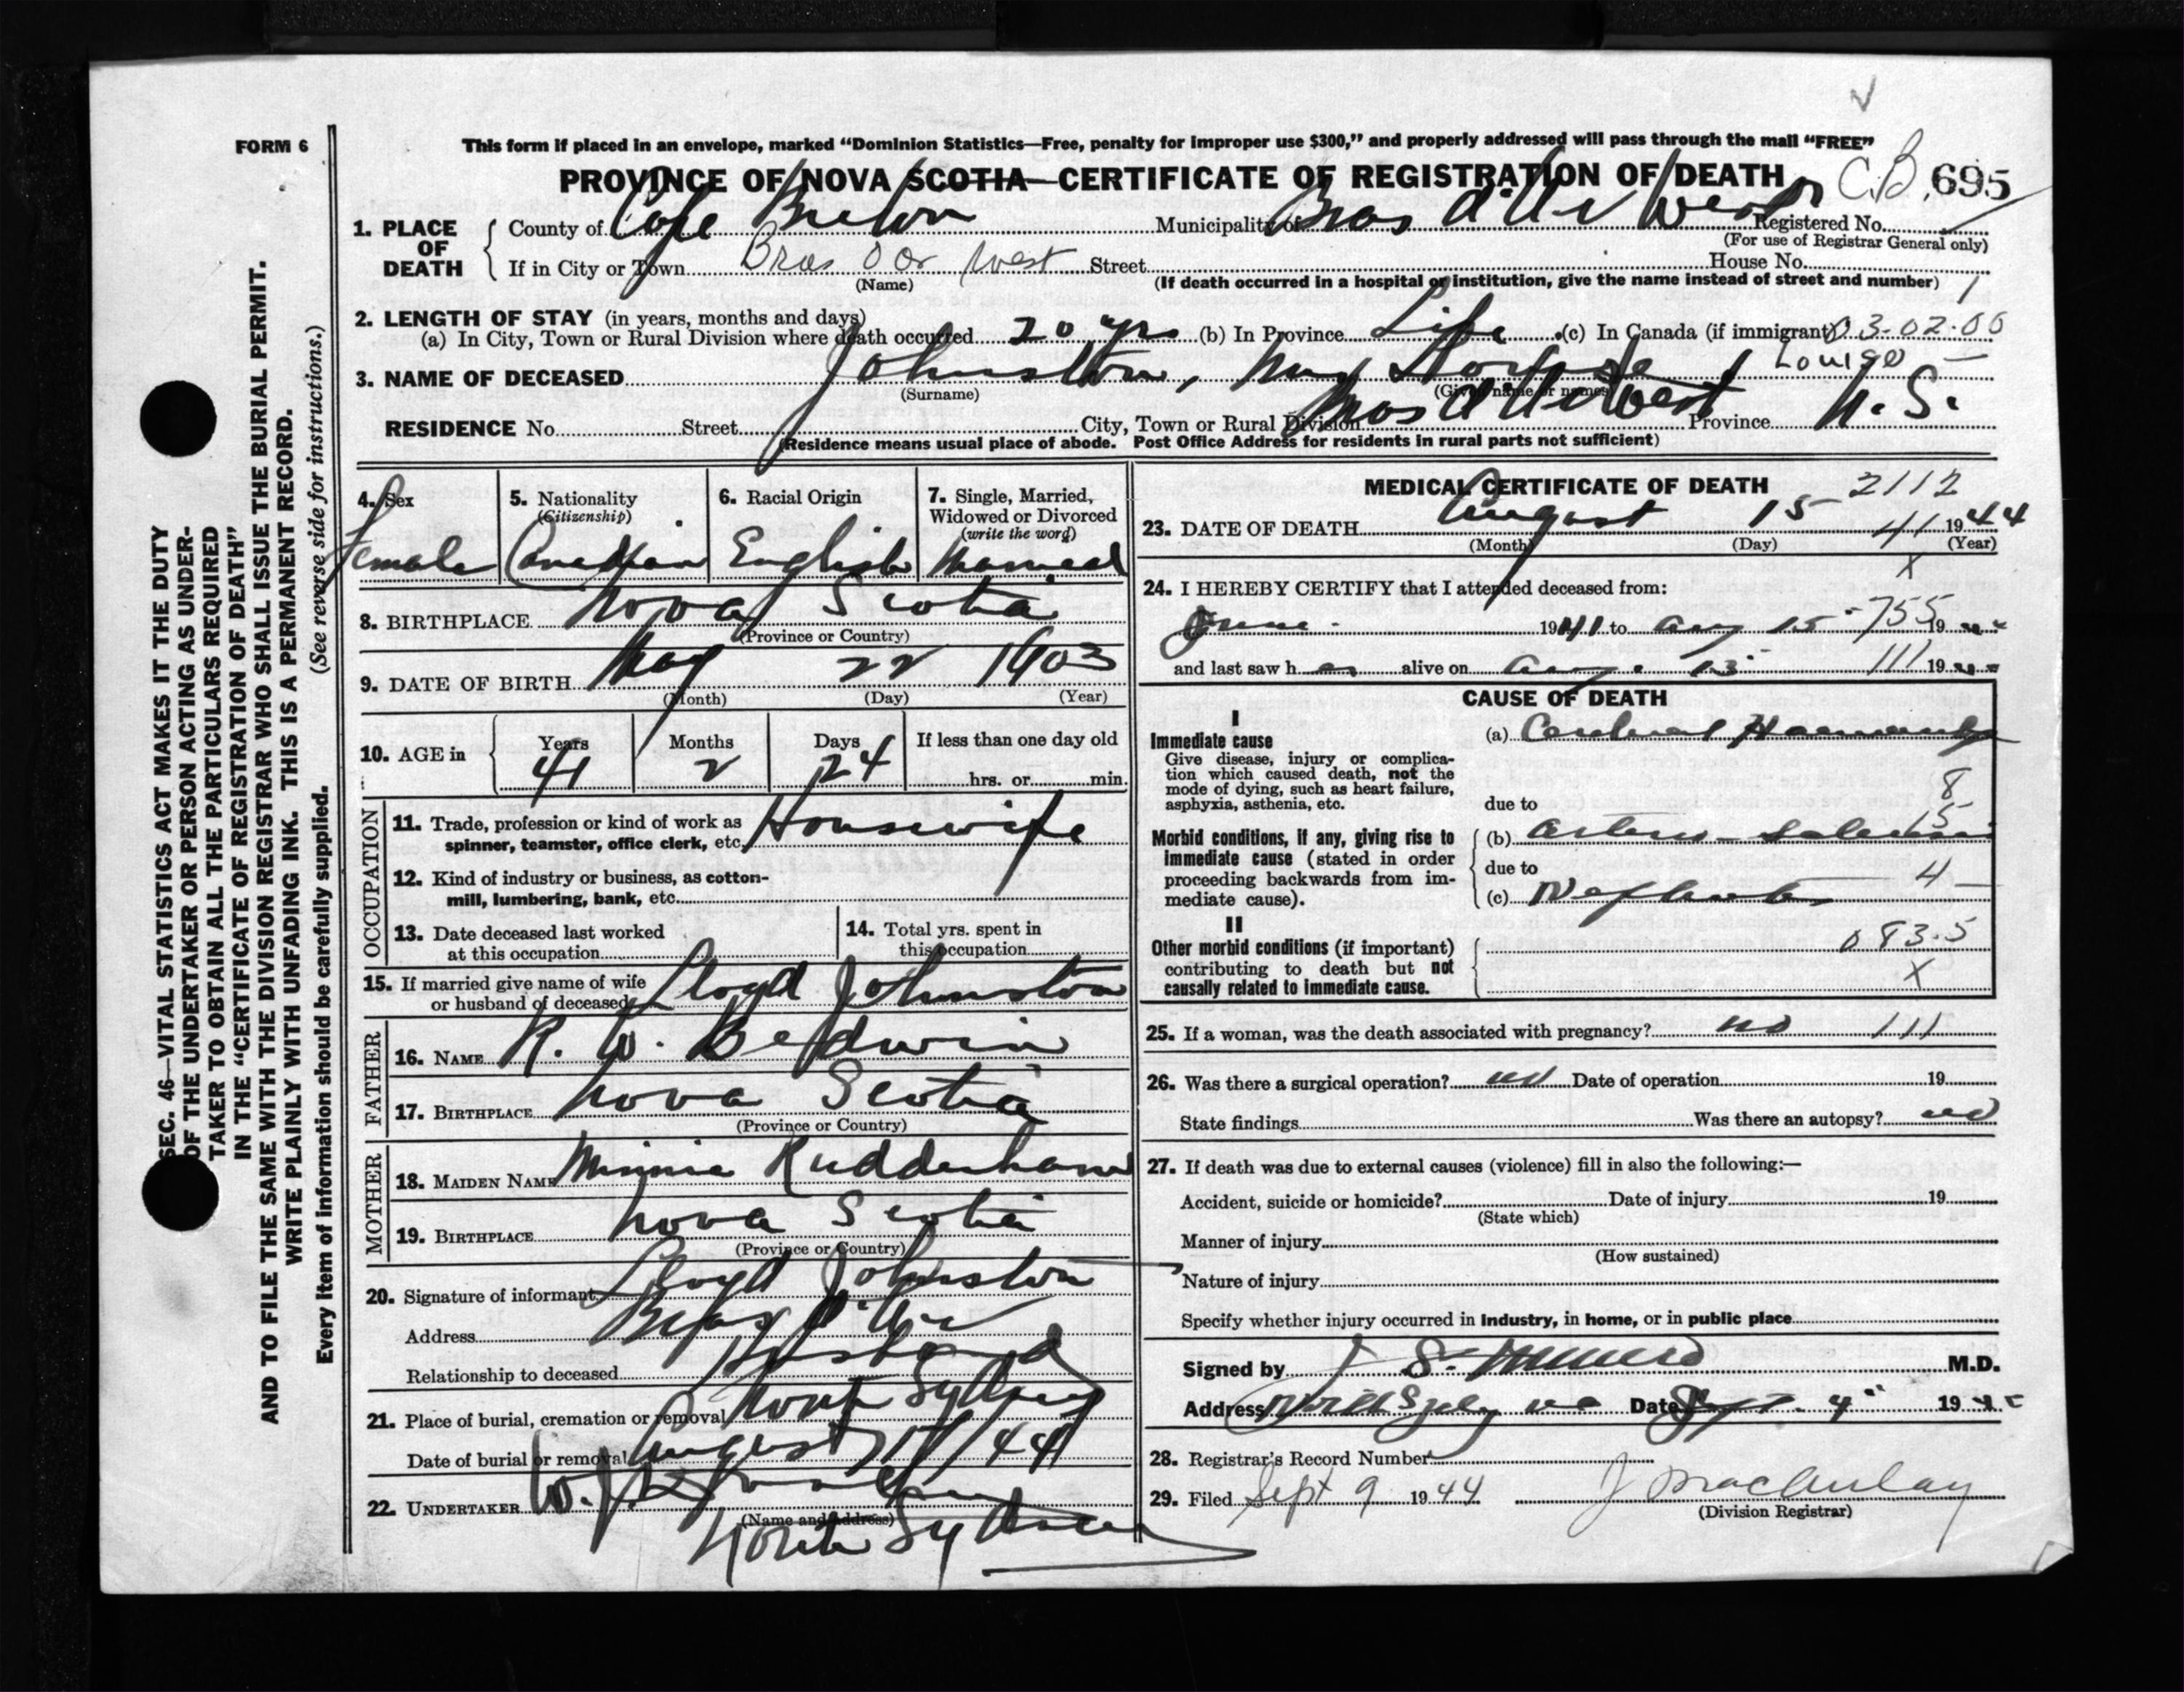 FORM 6
This form if placed in an envelope, marked “Dominion Statistics—Free, penalty for improper use $300,” and properly addressed will pass through the mail “FREE”
PROVINCE OF NOVA SCOTIA—CERTIFICATE OF REGISTRATION OF DEATH C.B. 695
1. PLACE OF DEATH
County of Cape Breton Municipality of Bras d'Or West Registered No.
(For use of Registrar General only)
If in City or Town Bras D Or West Street House No.
(Name) (If death occurred in a hospital or institution, give the name instead of street and number) 1
2. LENGTH OF STAY (in years, months and days)
(a) In City, Town or Rural Division where death occurred 20 yrs (b) In Province Life (c) In Canada (if immigrant) 03-02-00
3. NAME OF DECEASED Johnston, Louise
(Surname) (Given name or names)
RESIDENCE No. Street City, Town or Rural Division Bras d'Or West Province N.S.
(Residence means usual place of abode. Post Office Address for residents in rural parts not sufficient)
4. Sex Female
5. Nationality (Citizenship) Canadian
6. Racial Origin English
7. Single, Married, Widowed or Divorced (write the word) Married
8. BIRTHPLACE Nova Scotia
(Province or Country)
9. DATE OF BIRTH May 22 1903
(Month) (Day) (Year)
10. AGE in Years 41 Months 2 Days 24 If less than one day old
hrs. or min.
OCCUPATION
11. Trade, profession or kind of work as spinner, teamster, office clerk, etc. Housewife
12. Kind of industry or business, as cotton-
mill, lumbering, bank, etc.
13. Date deceased last worked at this occupation
14. Total yrs. spent in this occupation
15. If married give name of wife or husband of deceased Lloyd Johnston
FATHER
16. NAME R. W. Beldwin
17. BIRTHPLACE Nova Scotia
(Province or Country)
MOTHER
18. MAIDEN NAME Minnie Rudderham
19. BIRTHPLACE Nova Scotia
(Province or Country)
20. Signature of informant Lloyd Johnston
Address Bras d'Or
Relationship to deceased Husband
21. Place of burial, cremation or removal North Sydney
Date of burial or removal August 17/44
22. UNDERTAKER W. J.
(Name and Address)
North Sydney
MEDICAL CERTIFICATE OF DEATH 2112
23. DATE OF DEATH August 15 1944
(Month) (Day) (Year)
X
24. I HEREBY CERTIFY that I attended deceased from:
June 1941 to Aug 15 755 19
and last saw h alive on Aug. 13 111 19
CAUSE OF DEATH
I
Immediate cause
Give disease, injury or complica-
tion which caused death, not the
mode of dying, such as heart failure,
asphyxia, asthenia, etc.
(a) Cerebral Haemorrhage
due to 8
Morbid conditions, if any, giving rise to
immediate cause (stated in order
proceeding backwards from im-
mediate cause).
(b) Arterio-Sclerosis 15
due to
(c) Nephritis 4
II
Other morbid conditions (if important)
contributing to death but not
causally related to immediate cause.
093.5
X
25. If a woman, was the death associated with pregnancy? no 111
26. Was there a surgical operation? no Date of operation 19
State findings Was there an autopsy? no
27. If death was due to external causes (violence) fill in also the following:—
Accident, suicide or homicide? Date of injury 19
(State which)
Manner of injury
(How sustained)
Nature of injury
Specify whether injury occurred in industry, in home, or in public place
Signed by M.D.
Address North Sydney Date Sept. 4 19
28. Registrar's Record Number
29. Filed Sept 9 1944 J MacAulay
(Division Registrar)
SEC. 46—VITAL STATISTICS ACT MAKES IT THE DUTY
OF THE UNDERTAKER OR PERSON ACTING AS UNDER-
TAKER TO OBTAIN ALL THE PARTICULARS REQUIRED
IN THE “CERTIFICATE OF REGISTRATION OF DEATH”
AND TO FILE THE SAME WITH THE DIVISION REGISTRAR WHO SHALL ISSUE THE BURIAL PERMIT.
WRITE PLAINLY WITH UNFADING INK. THIS IS A PERMANENT RECORD.
Every item of information should be carefully supplied. (See reverse side for instructions.)